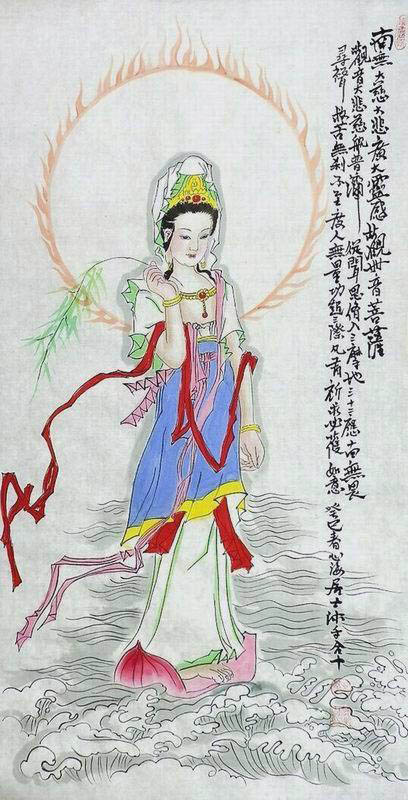 南無大慈大悲廣大靈感觀世音菩薩
觀音大悲慈航普濟 從聞思脩入三摩地三十二應十四無畏
尋聲救苦無剎不至度人無量功超三際凡有祈求必獲如意 癸巳春心海居士沐手合十